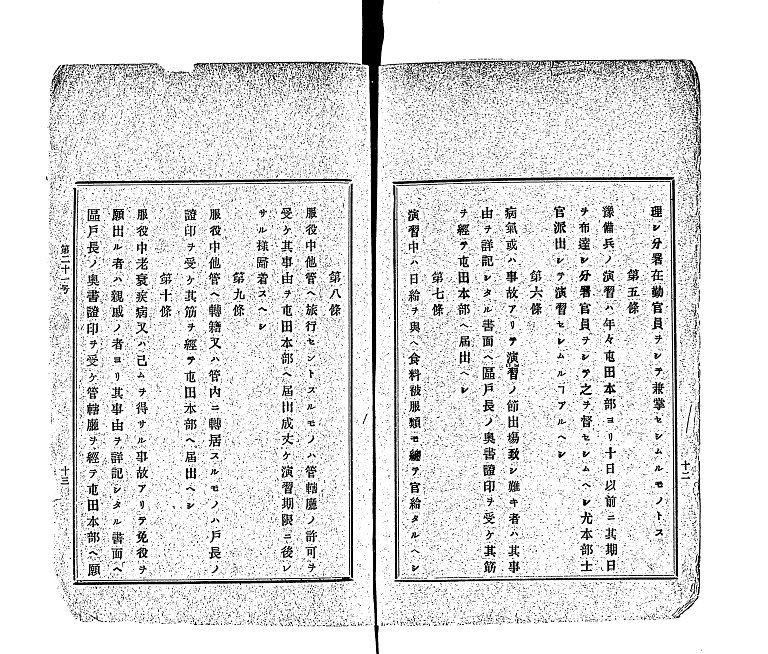 理シ分署在勤官員ヲシテ兼掌セシムルモノトス
第五條
豫備兵ノ演習ハ年々屯田本部ヨリ十日以前ニ其期日
ヲ布達シ分署官員ヲシテ之ヲ督セシムヘシ尤本部士
官派出シテ演習セシムルヿアルヘシ
第六條
病氣或ハ事故アリテ演習ノ節出場致シ難キ者ハ其事
由ヲ詳記シタル書面ヘ區戶長ノ奧書證印ヲ受ケ其筋
ヲ經テ屯田本部ヘ屆出ヘシ
第七條
演習中ハ日給ヲ與ヘ食料被服類モ總テ官給タルヘシ
十二
第八條
服役中他管ヘ旅行セントスルモノハ管轄廳ノ許可ヲ
受ケ其事由ヲ屯田本部ヘ屆出成丈ケ演習期限ニ後レ
サル樣歸着スヘシ
第九條
服役中他管ヘ轉籍又ハ管内ニ轉居スルモノハ戶長ノ
證印ヲ受ケ其筋ヲ經テ屯田本部ヘ屆出ヘシ
第十條
服役中老衰疾病又ハ已ムヲ得サル事故アリテ免役ヲ
願出ル者ハ親戚ノ者ヨリ其事由ヲ詳記シタル書面ヘ
區戶長ノ奧書證印ヲ受ケ管轄廳ヲ經テ屯田本部ヘ願
第二十一号
十三